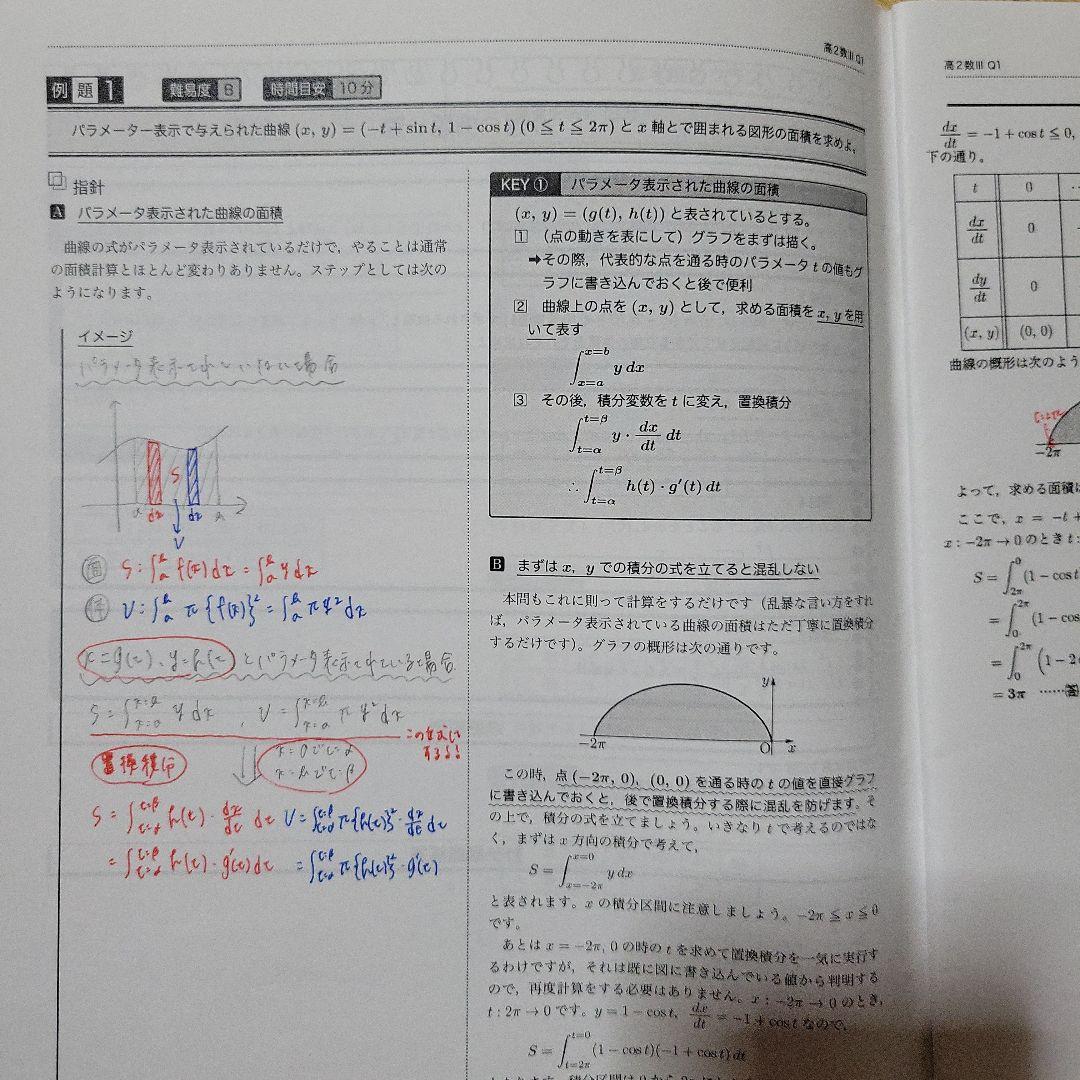 高2数III Q1
例題1 難易度 B 時間目安 10分
パラメーター表示で与えられた曲線 (x, y) = (−t + sin t, 1 − cos t) (0 ≦ t ≦ 2π) と x 軸とで囲まれる図形の面積を求めよ.
指針
A パラメータ表示された曲線の面積
曲線の式がパラメータ表示されているだけで，やることは通常
の面積計算とほとんど変わりありません。ステップとしては次の
ようになります。
イメージ
パラメータ表示されていない場合
S
α dx dx
V
面 S=∫f(x)dx=∫y dx
体 V=∫π{f(x)}²=∫πy²dx
x=g(t), y=h(t) とパラメータ表示されている場合
S=∫y dx , V=∫πy²dx
置換積分
S=∫h(t)・dx/dt dt V=∫π{h(t)}²・dx/dt dt
=∫h(t)・g'(t)dt =∫π{h(t)}²・g'(t)
KEY① パラメータ表示された曲線の面積
(x, y) = (g(t), h(t)) と表されているとする。
1 （点の動きを表にして）グラフをまずは描く。
➡その際，代表的な点を通る時のパラメータ t の値もグ
ラフに書き込んでおくと後で便利
2 曲線上の点を (x, y) として，求める面積を x, y を用
いて表す
∫_{x=a}^{x=b} y dx
3 その後，積分変数を t に変え，置換積分
∫_{t=α}^{t=β} y・dx/dt dt
∴ ∫_{t=α}^{t=β} h(t)・g′(t) dt
B まずは x, y での積分の式を立てると混乱しない
本問もこれに則って計算をするだけです（乱暴な言い方をすれ
ば，パラメータ表示されている曲線の面積はただ丁寧に置換積分
するだけです）。グラフの概形は次の通りです。
y
−2π O x
この時，点 (−2π, 0), (0, 0) を通る時の t の値を直接グラフ
に書き込んでおくと，後で置換積分する際に混乱を防げます。そ
の上で，積分の式を立てましょう。いきなり t で考えるのではな
く，まずは x 方向の積分で考えて，
S = ∫_{x=−2π}^{x=0} y dx
と表されます。x の積分区間に注意しましょう。−2π ≦ x ≦ 0
です。
あとは x = −2π, 0 の時の t を求めて置換積分を一気に実行す
るわけですが，それは既に図に書き込んでいる値から判明する
ので，再度計算をする必要はありません。x : −2π → 0 のとき，
t : 2π → 0 です。y = 1 − cos t, dx/dt = −1 + cos t なので，
S = ∫_{t=2π}^{t=0} (1 − cos t)(−1 + cos t) dt
高2数III Q1
dx/dt = −1 + cos t ≦ 0,
下の通り。
t 0
dx/dt 0
dy/dt 0
(x, y) (0, 0)
曲線の概形は次のよう
−2π
よって，求める面積は
ここで，x = −t +
x : −2π → 0 のとき t :
S = ∫_{2π}^{0} (1 − cos t
= ∫_{0}^{2π} (1 − cos
= ∫_{0}^{2π} (1 − 2
= 3π ……(答)